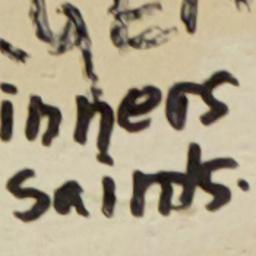 inners
saints.